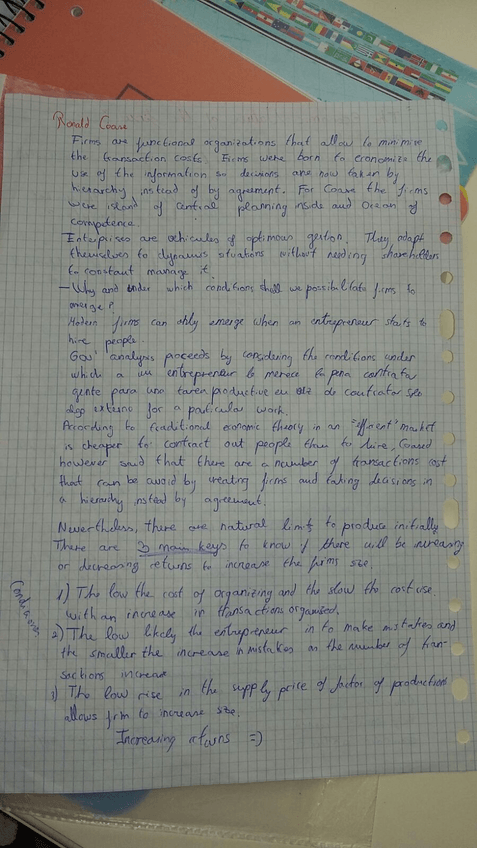 Ronald Coase
Firms are functional organizations that allow to minimize
the transaction costs. Firms were born to economize the
use of the information so decisions are now taken by
hierarchy instead of by agreement. For Coase the firms
were island of central planning inside and Ocean of
competence.
Enterprises are vehicules of optimous gestion. They adapt
themselves to dynamics situations without needing shareholders
to constant manage it.
- Why and under which conditions shall we possibilitate firms to
emerge?
Modern firms can only emerge when an entrepreneur starts to
hire people.
analysis proceeds by considering the conditions under
which a un entrepreneur le merece la pena contratar
gente para una tarea productive en vez de contratar
algo externo for a particular work.
According to traditional economic theory in an "efficient" market
is cheaper to contract out people than to hire, Coased
however said that there are a number of transactions cost
that can be avoid by creating firms and taking decisions in
a hierarchy instead by agreement.
Nevertheless, there are natural limits to produce initially
There are 3 main keys to know if there will be increasing
or decreasing returns to increase the firms size
Conditions
1) The low the cost of organizing and the slow the cost use
with an increase in transactions organised.
2) The low likely the entrepreneur in to make mistakes and
the smaller the increase in mistakes as the number of tran-
sactions increase
3) The low rise in the supply price of factor of productions
allows firm to increase size
Increasing returns =)